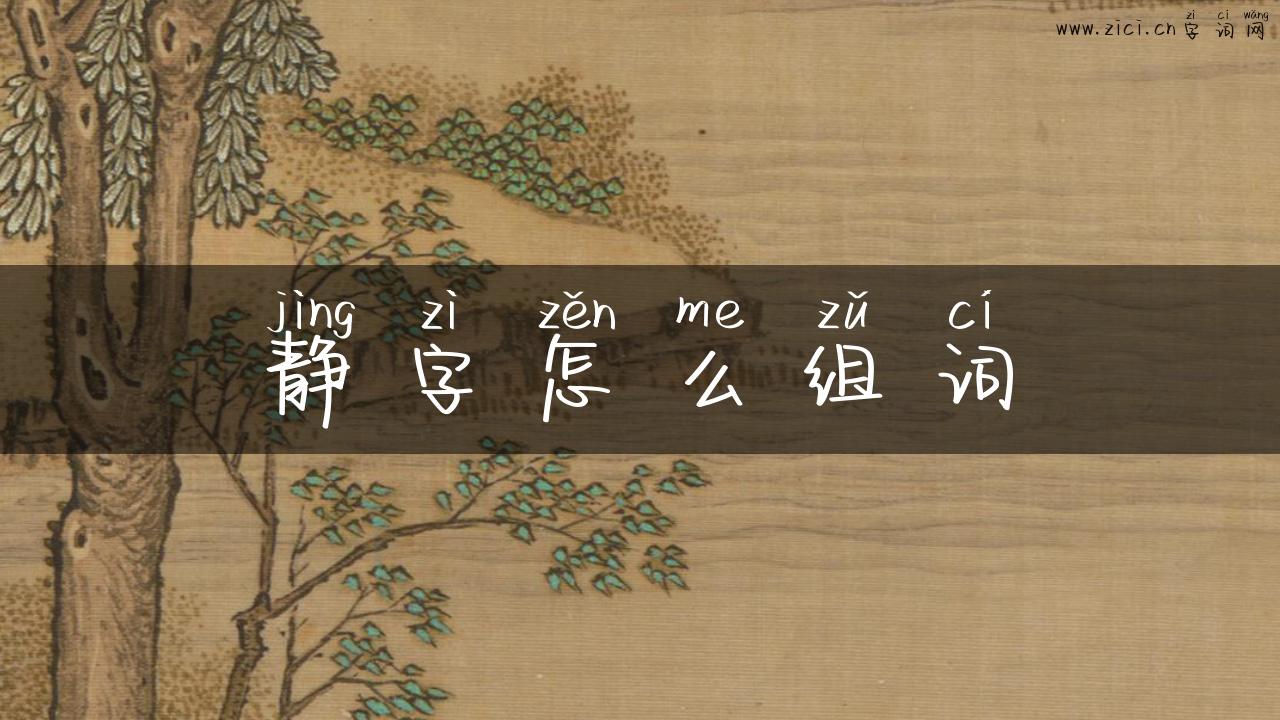 zì cí wǎng
www.zici.cn 字词网
jìng zì zěn me zǔ cí
静字怎么组词